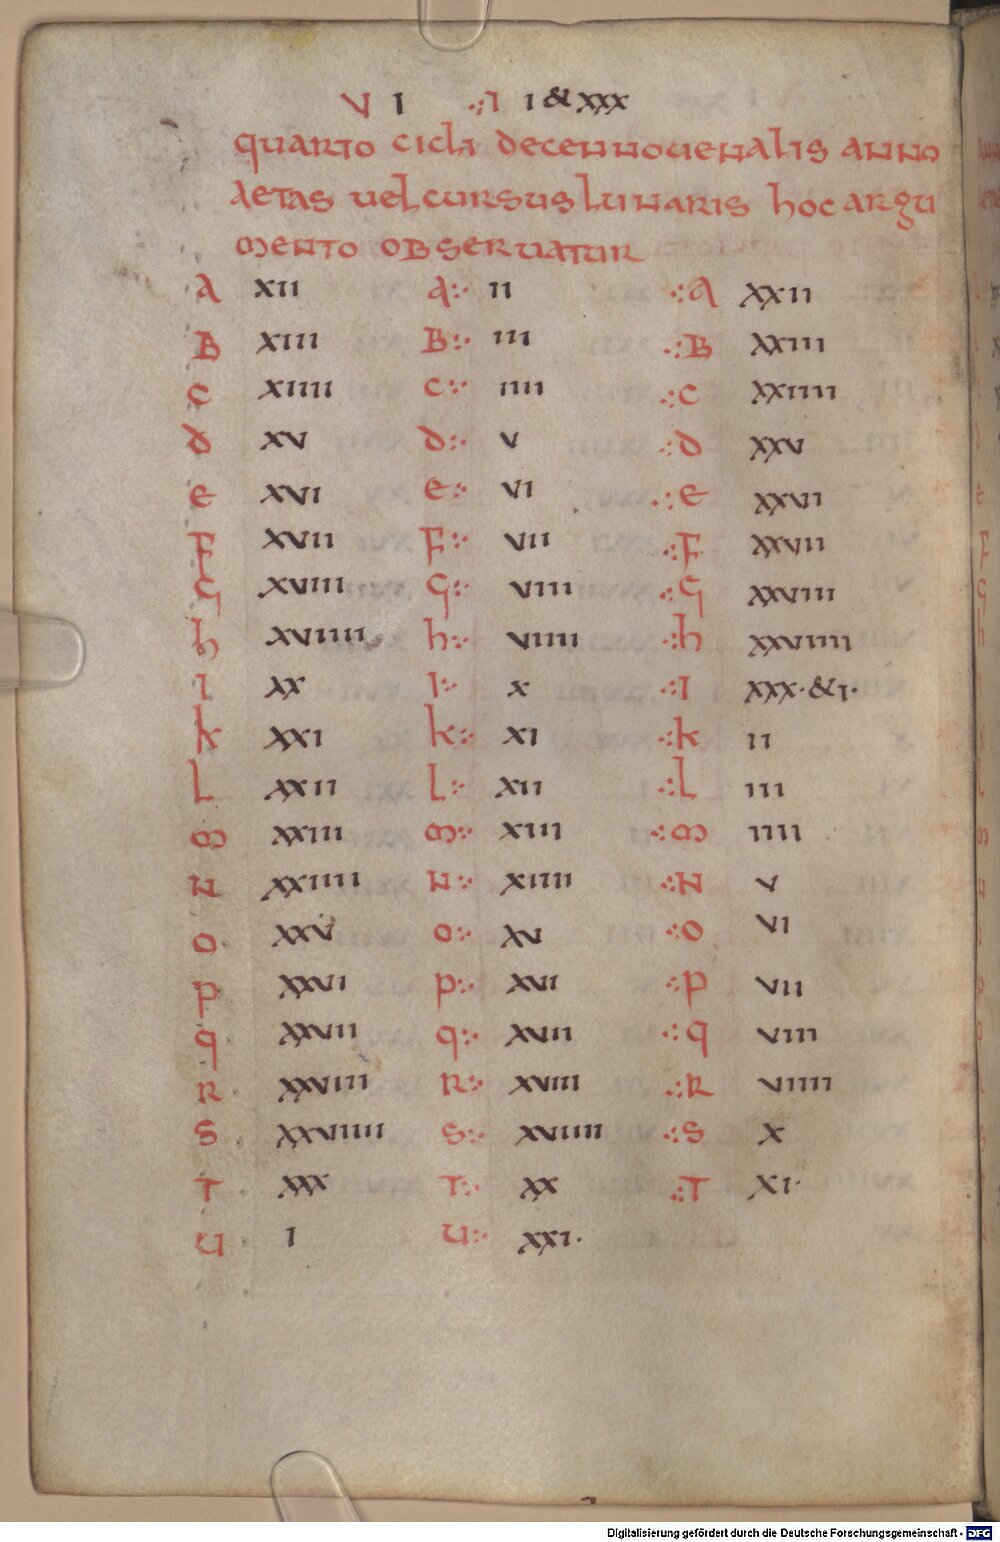 V I ∴I I & XXX
quarto cicli decennouenalis anno
aetas uel cursus lunaris hoc argu
mento obseruatur
A XII A:· II ·:A XXII
B XIII B:· III ·:B XXIII
C XIIII C:· IIII ·:C XXIIII
d XV d:· V ·:d XXV
e XVI e:· VI ·:e XXVII
F XVII F:· VII ·:F XXVII
G XVIII G:· VIII ·:G XXVIII
h XVIIII h:· VIIII ·:h XXVIIII
I XX I:· X ·:I XXX·&I·
k XXI k:· XI ·:k II
L XXII L:· XII ·:L III
m XXIII m:· XIII ·:m IIII
N XXIIII N:· XIIII ·:N V
o XXV o:· XV ·:o VI
p XXVI p:· XVI ·:p VII
q XXVII q:· XVII ·:q VIII
R XXVIII R:· XVIII ·:R VIIII
S XXVIIII S:· XVIIII ·:S X
T XXX T:· XX ·:T XI·
U I U:· XXI·
Digitalisierung gefördert durch die Deutsche Forschungsgemeinschaft - DFG